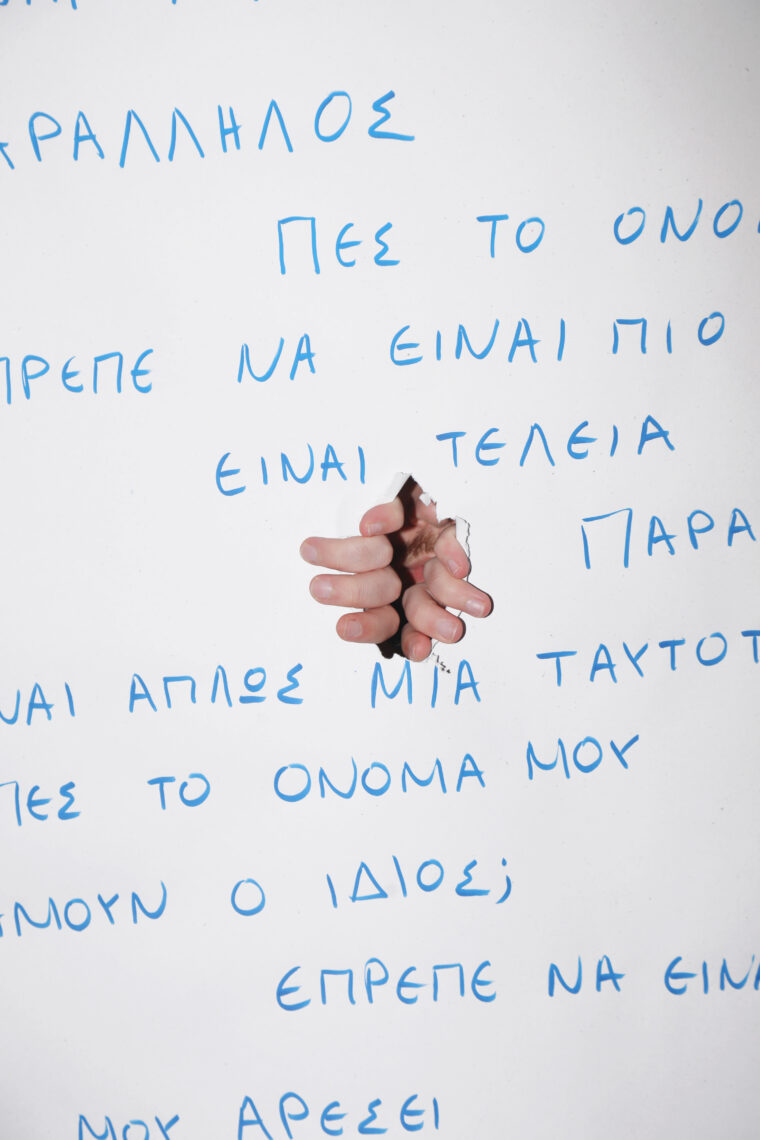 ΑΡΑΛΛΗΛΟΣ
ΠΕΣ ΤΟ ΟΝΟ
ΠΡΕΠΕ ΝΑ ΕΙΝΑΙ ΠΙΟ
ΕΙΝΑΙ ΤΕΛΕΙΑ
ΠΑΡΑ
ΝΑΙ ΑΠΛΩΣ ΜΙΑ ΤΑΥΤΟΤ
ΠΕΣ ΤΟ ΟΝΟΜΑ ΜΟΥ
ΑΜΟΥΝ Ο ΙΔΙΟΣ;
ΕΠΡΕΠΕ ΝΑ ΕΙΝΑ
ΜΟΥ ΑΡΕΣΕΙ